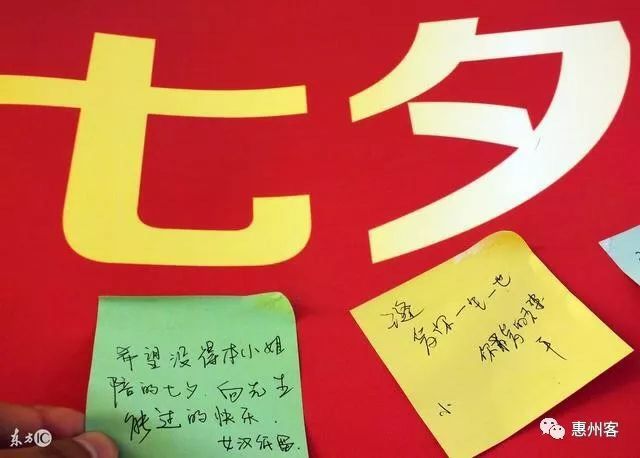 七夕
希望没得本小姐
陪的七夕.向先生
能过的快乐.
女汉纸留.
一生一世
小
东方IC
惠州客